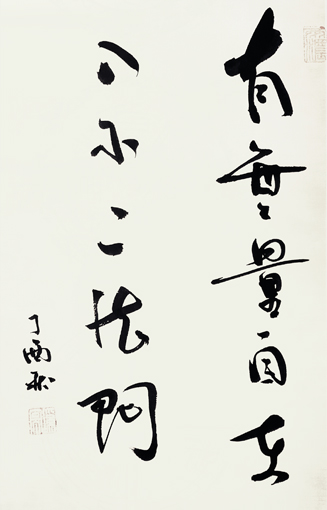 有無量自在
入不二法門
丁酉秋